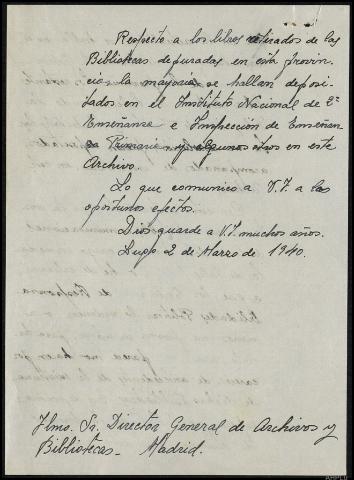 Respecto a los libros retirados de las
Bibliotecas depuradas en esta provin-
cia, la mayoria se hallan deposi-
tados en el Instituto Nacional de 2ª
Enseñanza e Inspección de Enseñan-
za Primaria, y algunos otros en este
Archivo.
Lo que comunico a V.I. a los
oportunos efectos.
Dios guarde a V.I. muchos años.
Lugo 2 de Marzo de 1940.
Ilmo. Sr. Director General de Archivos y
Bibliotecas.- Madrid.
AHPLU